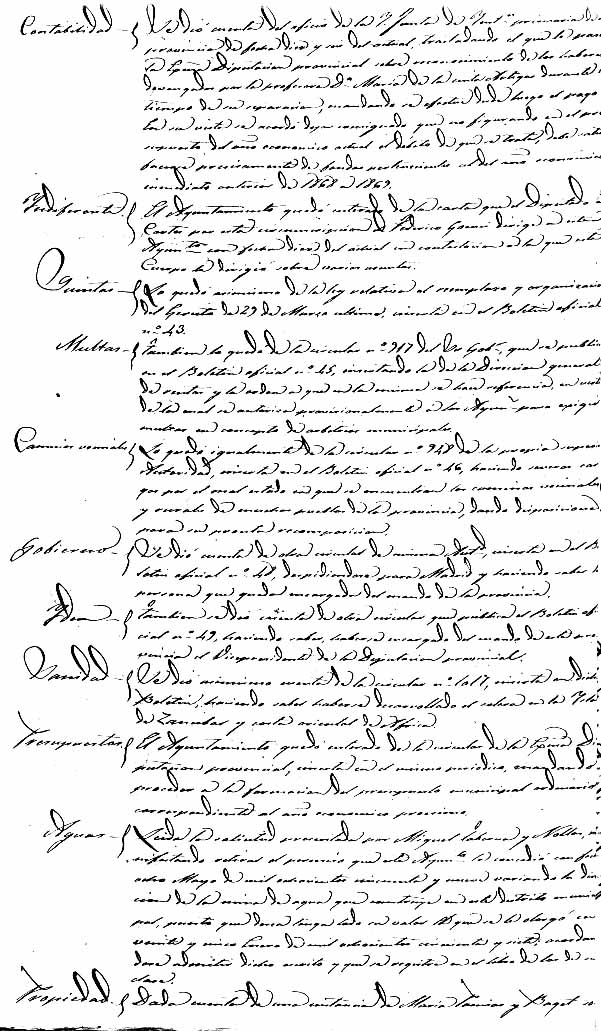 Contabilidad { Se dió cuenta del oficio de la Yl. Junta de Ynst.n primaria de
provincia de fecha diez y seis del actual, trasladando el que le pasó
la Excma Diputacion provincial sobre reconocimiento de los haberes
devengados por la profesora D.a Maria de la Artigas durante el
tiempo de su separacion, mandando se efectue desde luego el pago
En su vista se acordó dejar consignado que no figurando en el pre
supuesto del año economico actual el debito de que se trata, debe satis
facerse precisamente de fondos pertenecientes al del año economico
inmediato anterior de 1868 a 1869.
Yndiferente { El Ayuntamiento quedó enterado de la carta que el Diputado á
Cortes por esta circunscripcion D. Federico Gomis dirige a este
Ayunt.o con fecha diez del actual en contestacion a la que este
Cuerpo le dirigió sobre varios asuntos.
Quintas { Lo quedó asimismo de la ley relativa al reemplazo y organizacion
del Egercito de 29 de Marzo ultimo, inserta en el Boletin oficial
n.o 43.
Multas { Tambien lo quedó de la circular n.o 917 del Sr Gob.r, que se publica
en el Boletin oficial n.o 45, insertando la de la Direccion general
de rentas y la orden a que en la misma se hace referencia, en virtud
de la cual se autoriza provisionalmente a los Ayun.s para exigir
multas en concepto de arbitrios municipales.
Caminos vecinales { Lo quedó igualmente de la circular n.o 948 de la propia superior
Autoridad, inserta en el Boletin oficial n.o 46, haciendo severos car
gos por el mal estado en que se encuentran los caminos vecinales
y rurales de muchos pueblos de la provincia, dando disposiciones
para su pronta recomposicion.
Gobierno { Se dió cuenta de otra circular de misma Aut.d, inserta en el Bo
letin oficial n.o 48, despidiendose para Madrid y haciendo saber la
persona que queda encargada del mando de la provincia.
Ydem { Tambien se dió cuenta de otra circular que publica el Boletin ofi
cial n.o 49, haciendo saber, haberse encargado del mando de esta pro
vincia el Vicepresidente de la Diputacion provincial.
Sanidad { Se dió asimismo cuenta de la circular n.o 1017, inserta en dicho
Boletin, haciendo saber haberse desarrollado el colera en la Ysla
de Zanzibar y costa oriental de Africa
Presupuestos { El Ayuntamiento quedó enterado de la circular de la Excma Di
putacion provincial, inserta en el mismo periodico, mandando
proceder a la formacion del presupuesto municipal ordinario
correspondiente al año economico proximo.
Aguas { Leida la solicitud presentada por Miguel Taberna y Nolla, ma
nifestando retirar el permiso que este Ayun.to le concedió con fecha
ocho Mayo de mil ochocientos cincuenta y nueve variando la direc
cion de la mina de agua que construye en este distrito munici
pal, puesto que desea tenga todo su valor el que se le otorgó en
veinte y cinco Enero de mil ochocientos cincuenta y siete, acordan
dose admitir dicho escrito y que se registre en el libro de los de su
clase.
Propiedad { Dada cuenta de una instancia de Maria Tomas y Baget